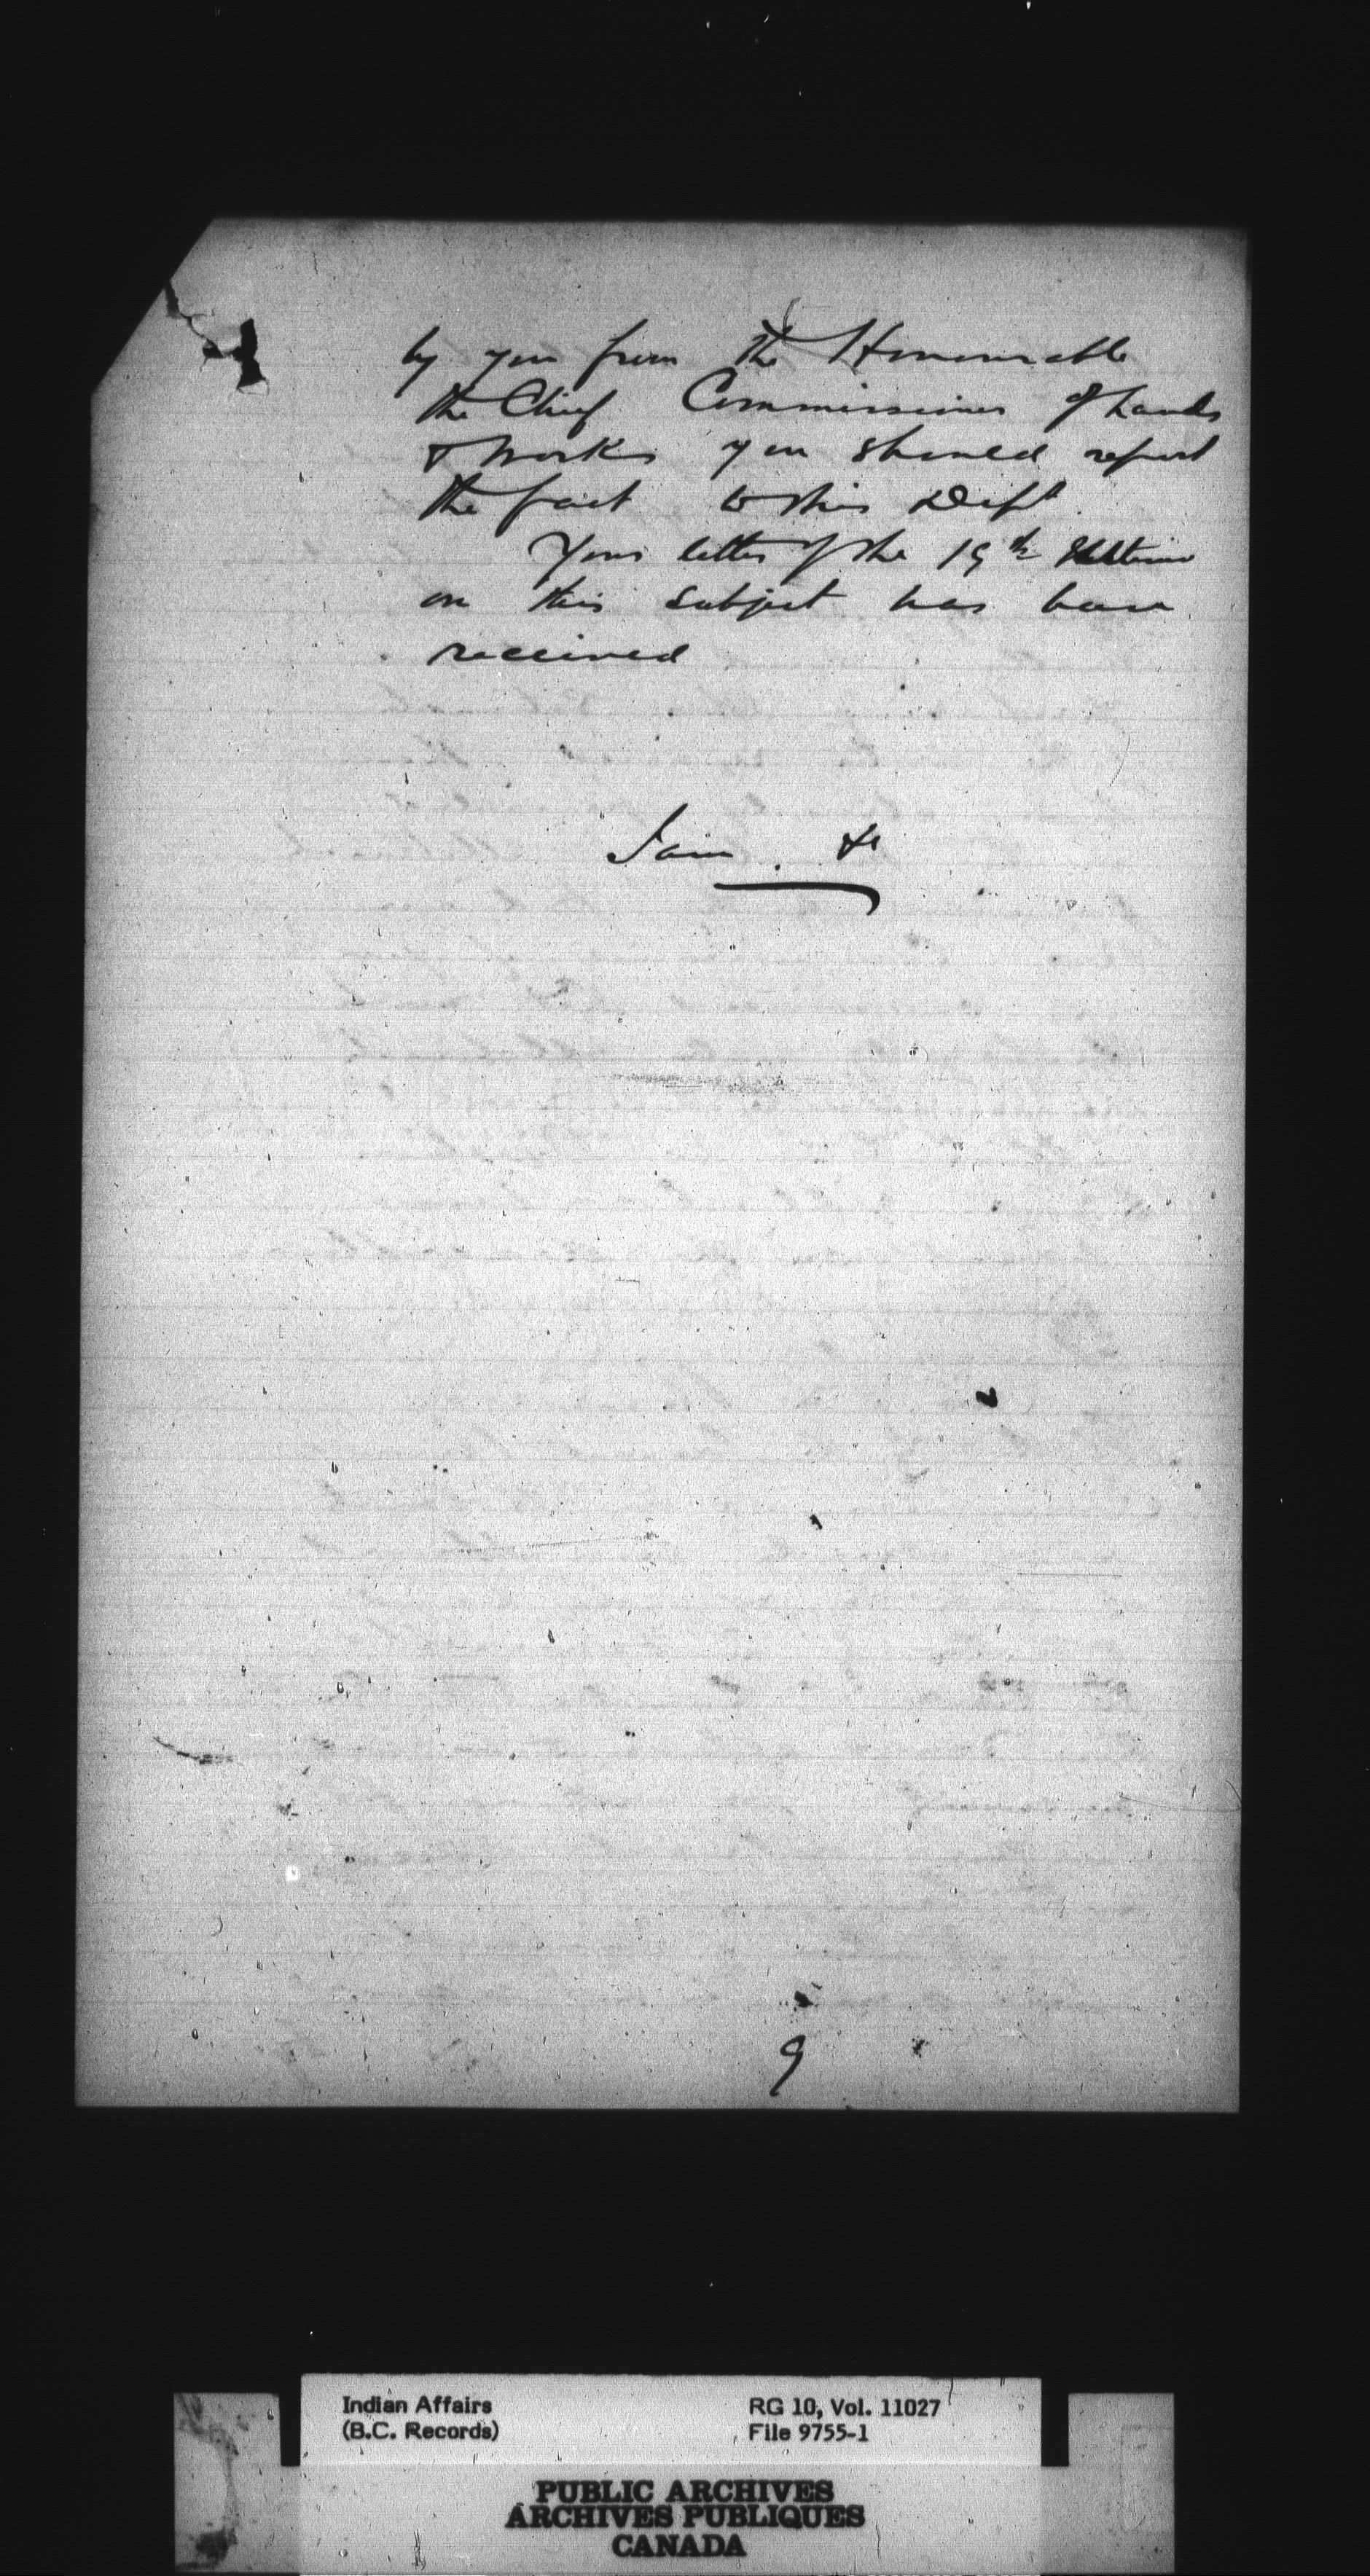 by you from the Honourable
the Chief Commissioner of Lands
& Works you should report
the fact to this Dept.
Your letter of the 19th Ultimo
on this subject has been
received
I am . &c
9
Indian Affairs
(B.C. Records)
RG 10, Vol. 11027
File 9755-1
PUBLIC ARCHIVES
ARCHIVES PUBLIQUES
CANADA